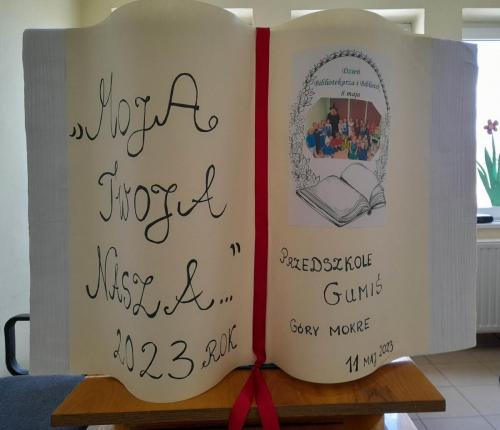 „MOJA
TWOJA
NASZA..."
2023 ROK
Dzień
Bibliotekarza i Bibliotek
8 maja
PRZEDSZKOLE
GUMIŚ
GÓRY MOKRE
11 MAJ 2023